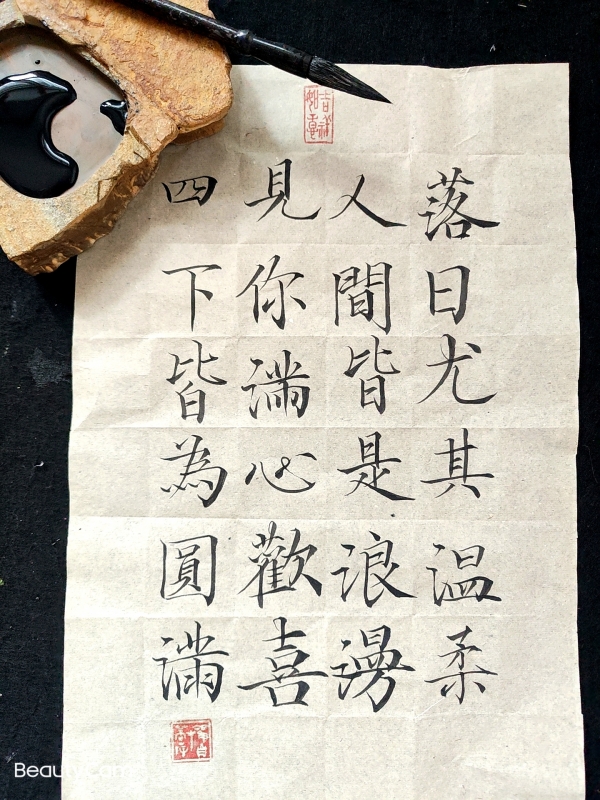 吉祥如意
落日尤其温柔
人間皆是浪漫
見你滿心歡喜
四下皆為圓滿